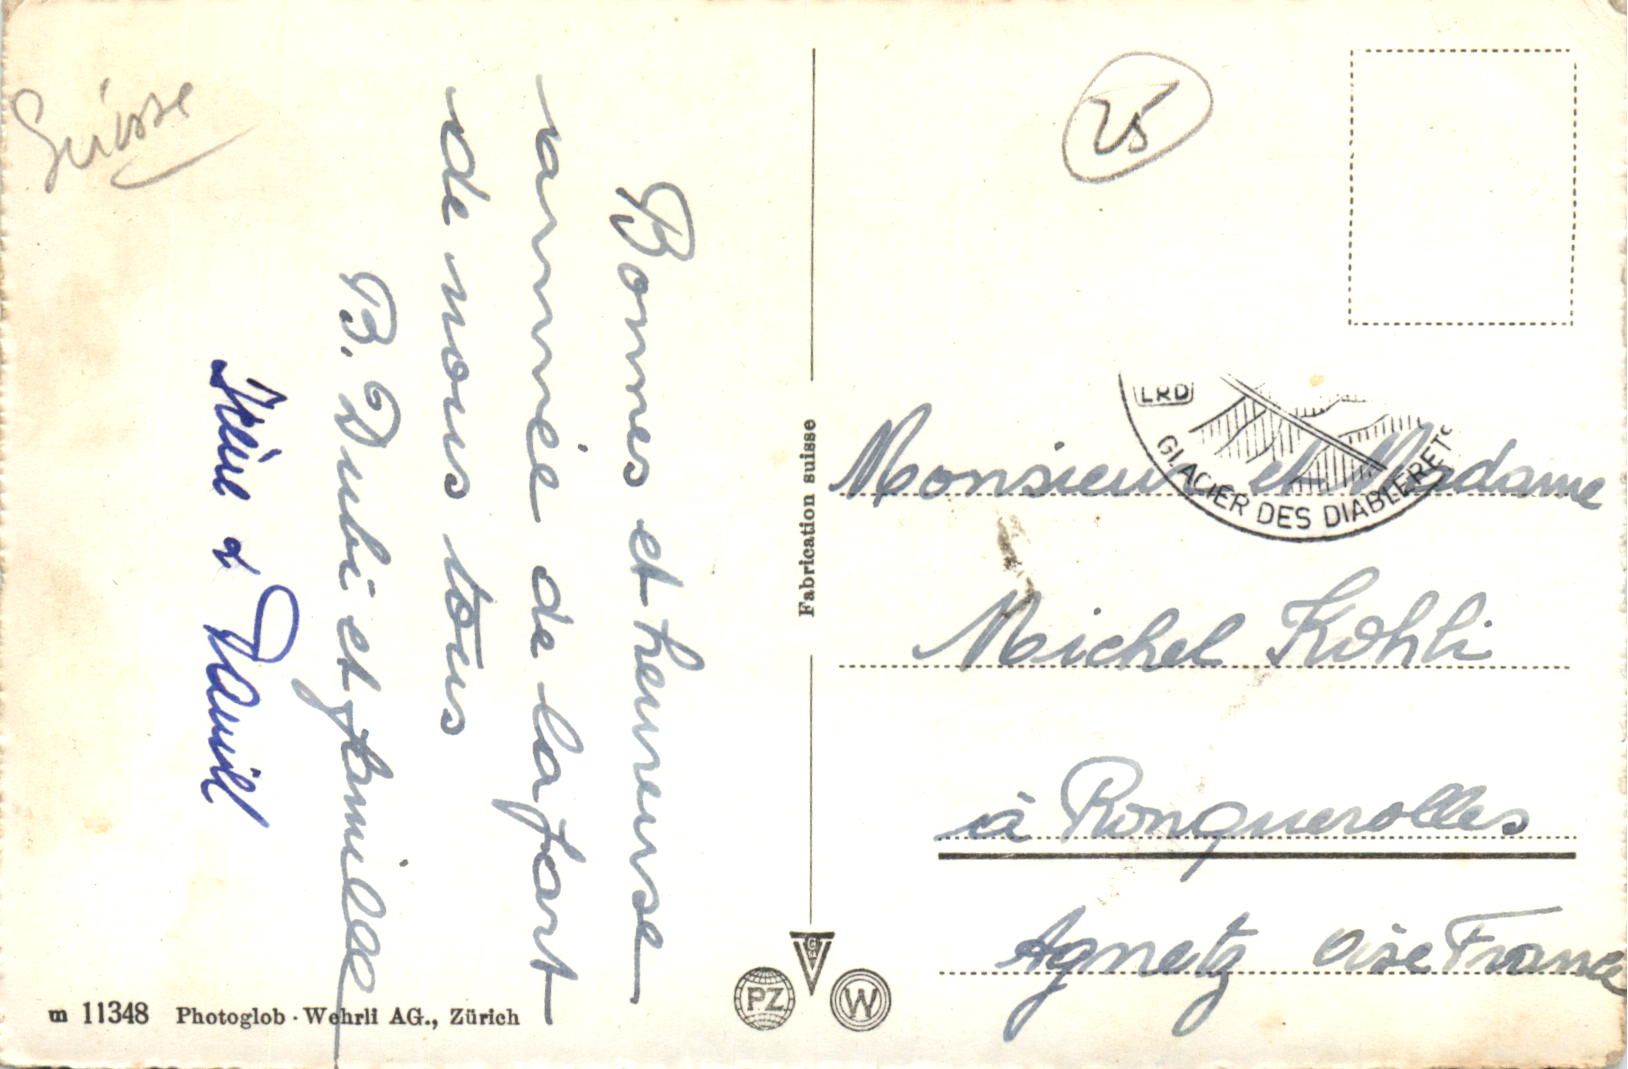 Suisse
25
Bonnes et heureuse
année de la part
de nous tous
B. Dubi et famille
Hélène & Daniel
Fabrication suisse
LRD
GLACIER DES DIABLERETS
Monsieur et Madame
Michel Kohli
à Ronquerolles
Agnetz Oise France
m 11348 Photoglob - Wehrli AG., Zürich
PZ
W